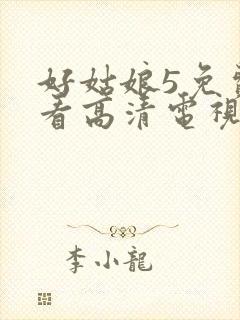 好姑娘5免
看高清電視
李小龍